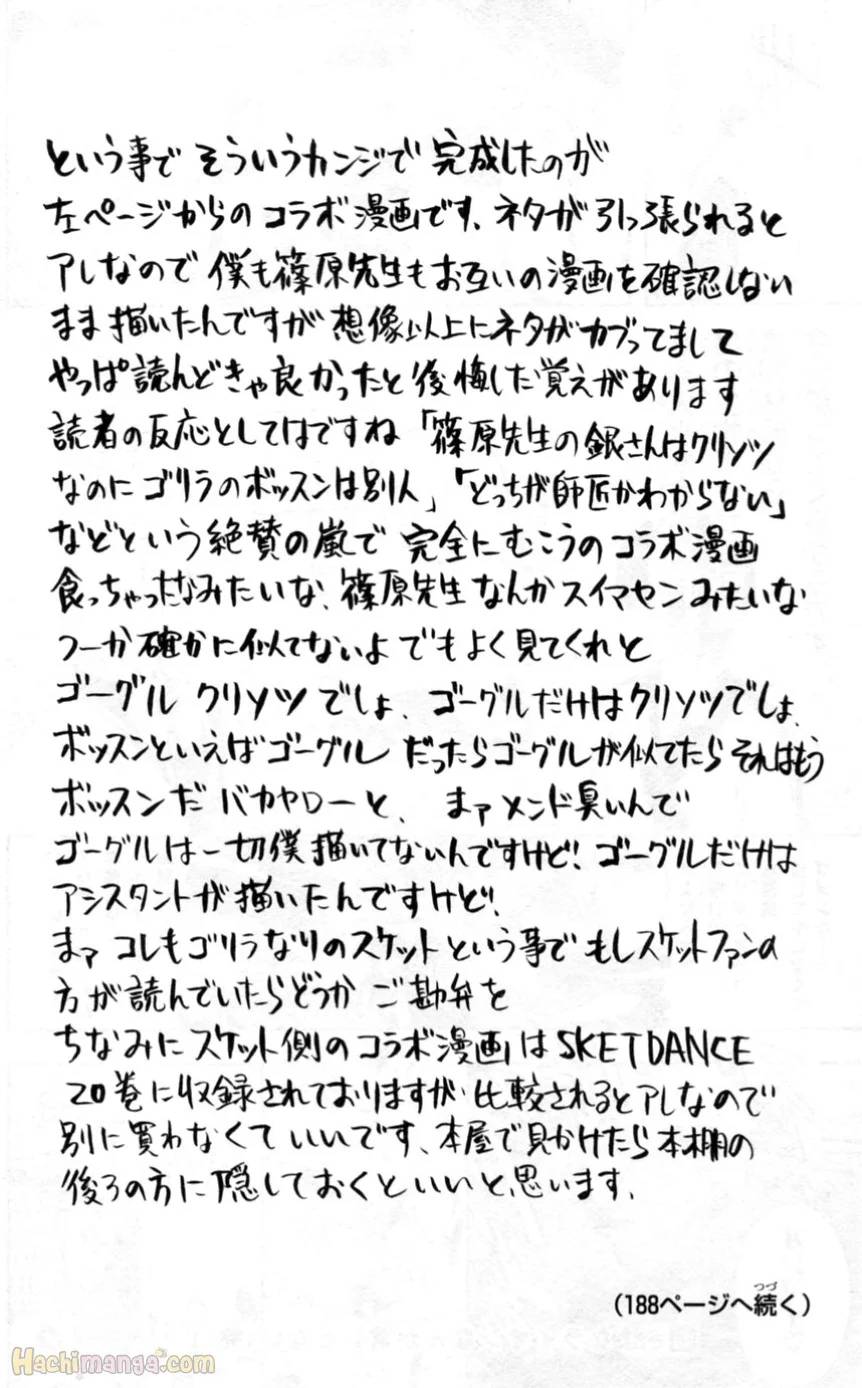 という事で そういうカンジで 完成したのが
左ページからの コラボ漫画です、ネタが引っ張られると
アレなので 僕も篠原先生もお互いの漫画を確認しない
まま描いたんですが 想像以上にネタがカブってまして
やっぱ読んどきゃ良かったと後悔した覚えがあります
読者の反応としてはですね「篠原先生の銀さんはクリソツ
なのに ゴリラのボッスンは別人」「どっちが師匠かわからない」
などという絶賛の嵐で 完全にむこうのコラボ漫画
食っちゃったなみたいな、篠原先生なんかスイマセンみたいな
つーか確かに似てないよ でもよく見てくれと
ゴーグル クリソツでしょ、ゴーグルだけはクリソツでしょ、
ボッスンといえばゴーグル だったらゴーグルが似てたらそれはもう
ボッスンだ バカヤローと、 まァメンド臭いんで
ゴーグルは一切僕描いてないんですけど!ゴーグルだけは
アシスタントが描いたんですけど!
まァ コレもゴリラなりのスケットという事で もしスケットファンの
方が読んでいたらどうか ご勘弁を
ちなみに スケット側のコラボ漫画は SKETDANCE
20巻に収録されておりますが 比較されるとアレなので
別に買わなくていいです、本屋で見かけたら本棚の
後ろの方に隠しておくといいと思います、
(188ページへ続く)
つづ
Hachimanga.com